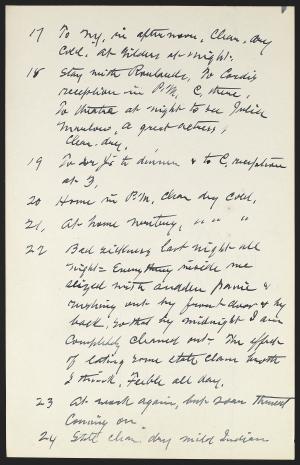 17 To N.Y. in afternoon, Clear, dry
cold. At Gilders at night.
18 Stay with Rowlands, To Cords
reception in P.M. C. there,
To theatre at night to see Julia
Marlowe, A great actress,
Clear, dry,
19 To dinner & to C. reception
at 3,
20 Home in P.M. Clear dry cold.
21, At home writing, " " "
22 Bad sickness last night all
night = Every thing inside me
seized with sudden panic &
rushing out by front door & by
back, so that by midnight I am
completely cleaned out - The effect
of eating some stale clam broth
I think, Feeble all day,
23 At work again, but
coming on
24 Still clear dry mild Indian